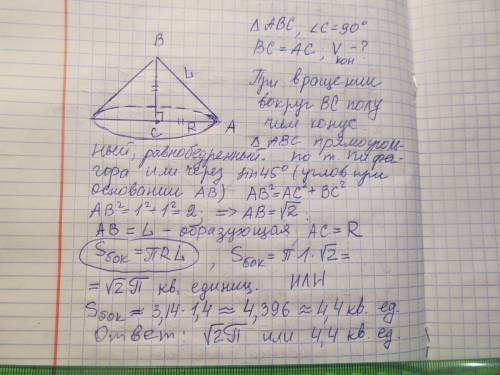 △ ABC, ∠C=90°
BC=AC, Vкон -?
При вращении
вокруг BC полу
чим конус
B
L
C
R
A
△ ABC прямоуголь-
ный, равнобедренный. по т. Пифа-
гора или через sin45° (углов при
основании AB) AB²=AC²+BC²
AB²=1²+1²=2, => AB=√2.
AB=L - образующая, AC=R
Sбок=πRL, Sбок=π·1·√2=
=√2π кв. единиц. ИЛИ
Sбок≈3,14·1,4≈4,396≈4,4 кв. ед.
Ответ: √2π или 4,4 кв. ед.